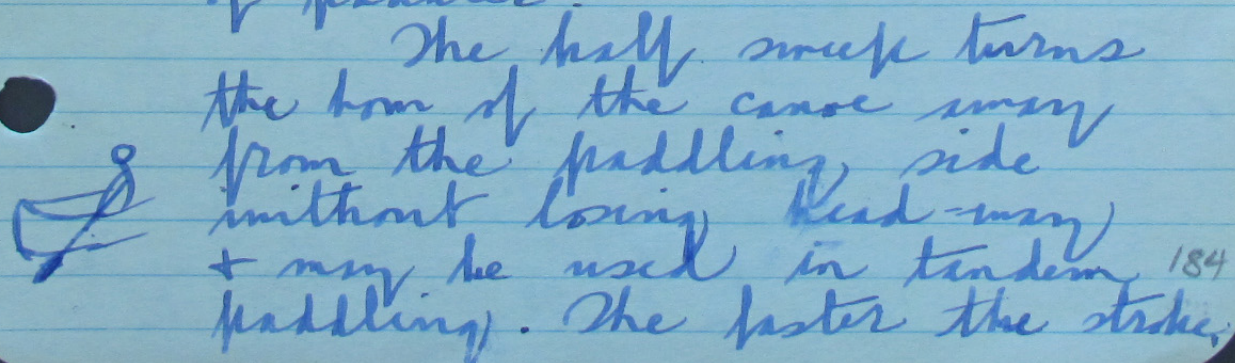 of paddler.
The half sweep turns
the bow of the canoe away
from the paddling side
without losing head-way
+ may be used in tandem
184
paddling. The faster the stroke,